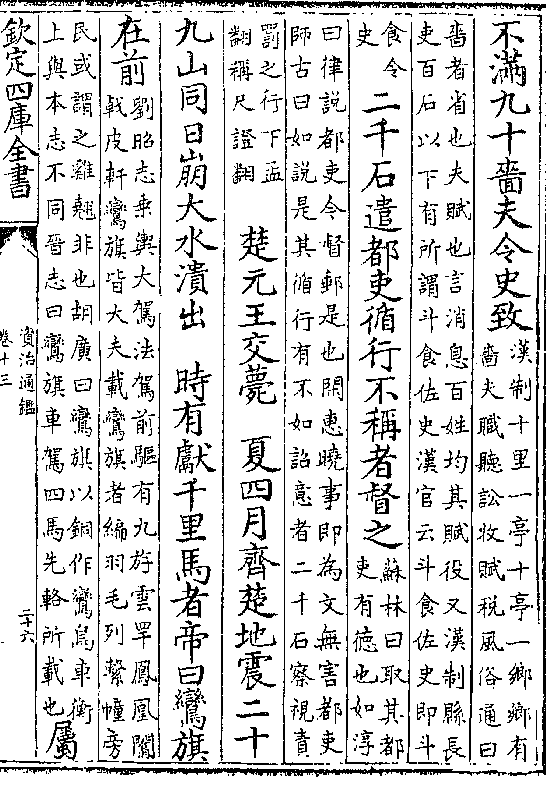 不滿九十嗇夫令史致漢制十里一亭十亭一鄉鄉有
嗇夫職聽訟收賦稅風俗通曰
嗇者省也夫賦也言消息百姓均其賦役又漢制縣長
吏百石以下有所謂斗食佐史漢官云斗食佐史即斗
食令
史
二千石遣都吏循行不稱者督之蘇林曰取其都
吏有德也如淳
曰律說都吏今督郵是也閑惠曉事即為文無害都吏
師古曰如說是其循行有不如詔意者二千石察視責
罰之行下孟
翻稱尺證翻
楚元王交薨 夏四月齊楚地震二十
九山同日崩大水潰出 時有獻千里馬者帝曰鸞旗
在前劉昭志乘輿大駕法駕前驅有九斿雲罕鳳凰闟
戟皮軒鸞旗皆大夫載鸞旗者編羽毛列繫幢旁
民或謂之雞翹非也胡廣曰鸞旗以銅作鸞鳥車衡
上與本志不同晉志曰鸞旗車駕四馬先輅所載也
屬
欽定四庫全書
資治通鑑
卷十三
二十六